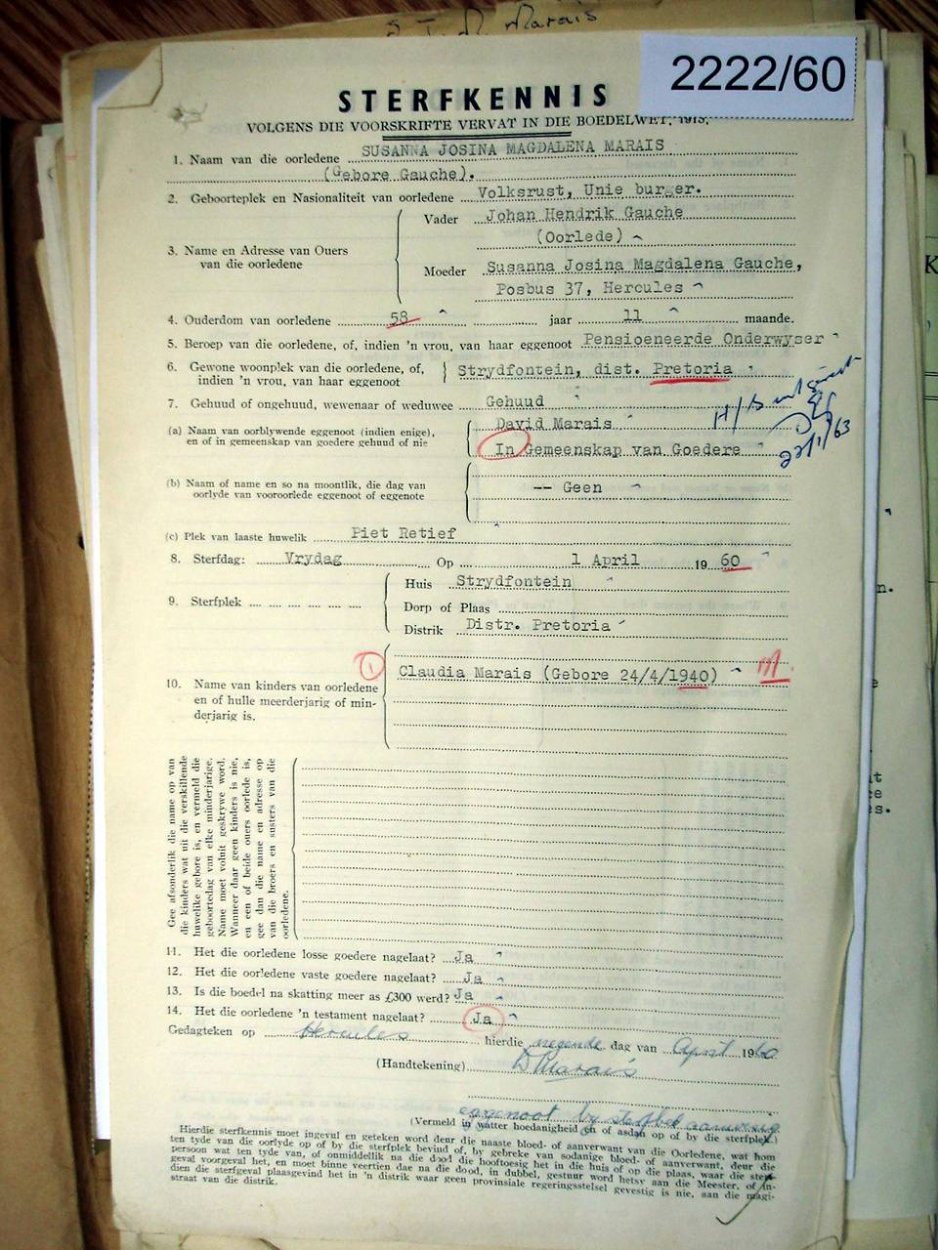 S J M Marais
2222/60
STERFKENNIS
VOLGENS DIE VOORSKRIFTE VERVAT IN DIE BOEDELWET, 1913.
1. Naam van die oorledene SUSANNA JOSINA MAGDALENA MARAIS
(Gebore Gauche).
2. Geboorteplek en Nasionaliteit van oorledene Volksrust, Unie burger.
Vader Johan Hendrik Gauche
(Oorlede)
3. Name en Adresse van Ouers
van die oorledene
Moeder Susanna Josina Magdalena Gauche,
Posbus 37, Hercules
4. Ouderdom van oorledene 58 jaar 11 maande.
5. Beroep van die oorledene, of, indien 'n vrou, van haar eggenoot Pensioeneerde Onderwyser
6. Gewone woonplek van die oorledene, of,
indien 'n vrou, van haar eggenoot
Strydfontein, dist. Pretoria
7. Gehuud of ongehuud, wewenaar of weduwee Gehuud
(a) Naam van oorblywende eggenoot (indien enige),
en of in gemeenskap van goedere gehuud of nie
David Marais
In Gemeenskap van Goedere
22/1/63
(b) Naam of name en so na moontlik, die dag van
oorlyde van vooroorlede eggenoot of eggenote
-- Geen
(c) Plek van laaste huwelik Piet Retief
8. Sterfdag: Vrydag Op 1 April 19 60
Huis Strydfontein
9. Sterfplek
Dorp of Plaas
Distrik Distr. Pretoria
1
Claudia Marais (Gebore 24/4/1940) M
10. Name van kinders van oorledene
en of hulle meerderjarig of min-
derjarig is.
Gee afsonderlik die name op van
die kinders wat uit die verskillende
huwelike gebore is, en vermeld die
geboortedag van elke minderjarige.
Name moet voluit geskrywe word.
Wanneer daar geen kinders is nie,
en een of beide ouers oorlede is,
gee dan die name en adresse op
van die broers en susters van die
oorledene.
11. Het die oorledene losse goedere nagelaat? Ja
12. Het die oorledene vaste goedere nagelaat? Ja
13. Is die boedel na skatting meer as £300 werd? Ja
14. Het die oorledene 'n testament nagelaat? Ja
Gedagteken op Hercules hierdie negende dag van April 1960
(Handtekening) D Marais
eggenoot by sterfbed aanwesig
(Vermeld in watter hoedanigheid en of asdan op of by die sterfplek)
Hierdie sterfkennis moet ingevul en geteken word deur die naaste bloed- of aanverwant van die Oorledene, wat hom
ten tyde van die oorlyde op of by die sterfplek bevind of, by gebreke van sodanige bloed- of aanverwant, deur die
persoon wat ten tyde van, of onmiddellik na die dood die hooftoesig het in die huis of op die plaas, waar die sterf-
geval voorgeval het, en moet binne veertien dae na die dood, in dubbel, gestuur word hetsy aan die Meester, of in-
dien die sterfgeval plaasgevind het in 'n distrik waar geen provinsiale regeringsstelsel gevestig is nie, aan die magi-
straat van die distrik.